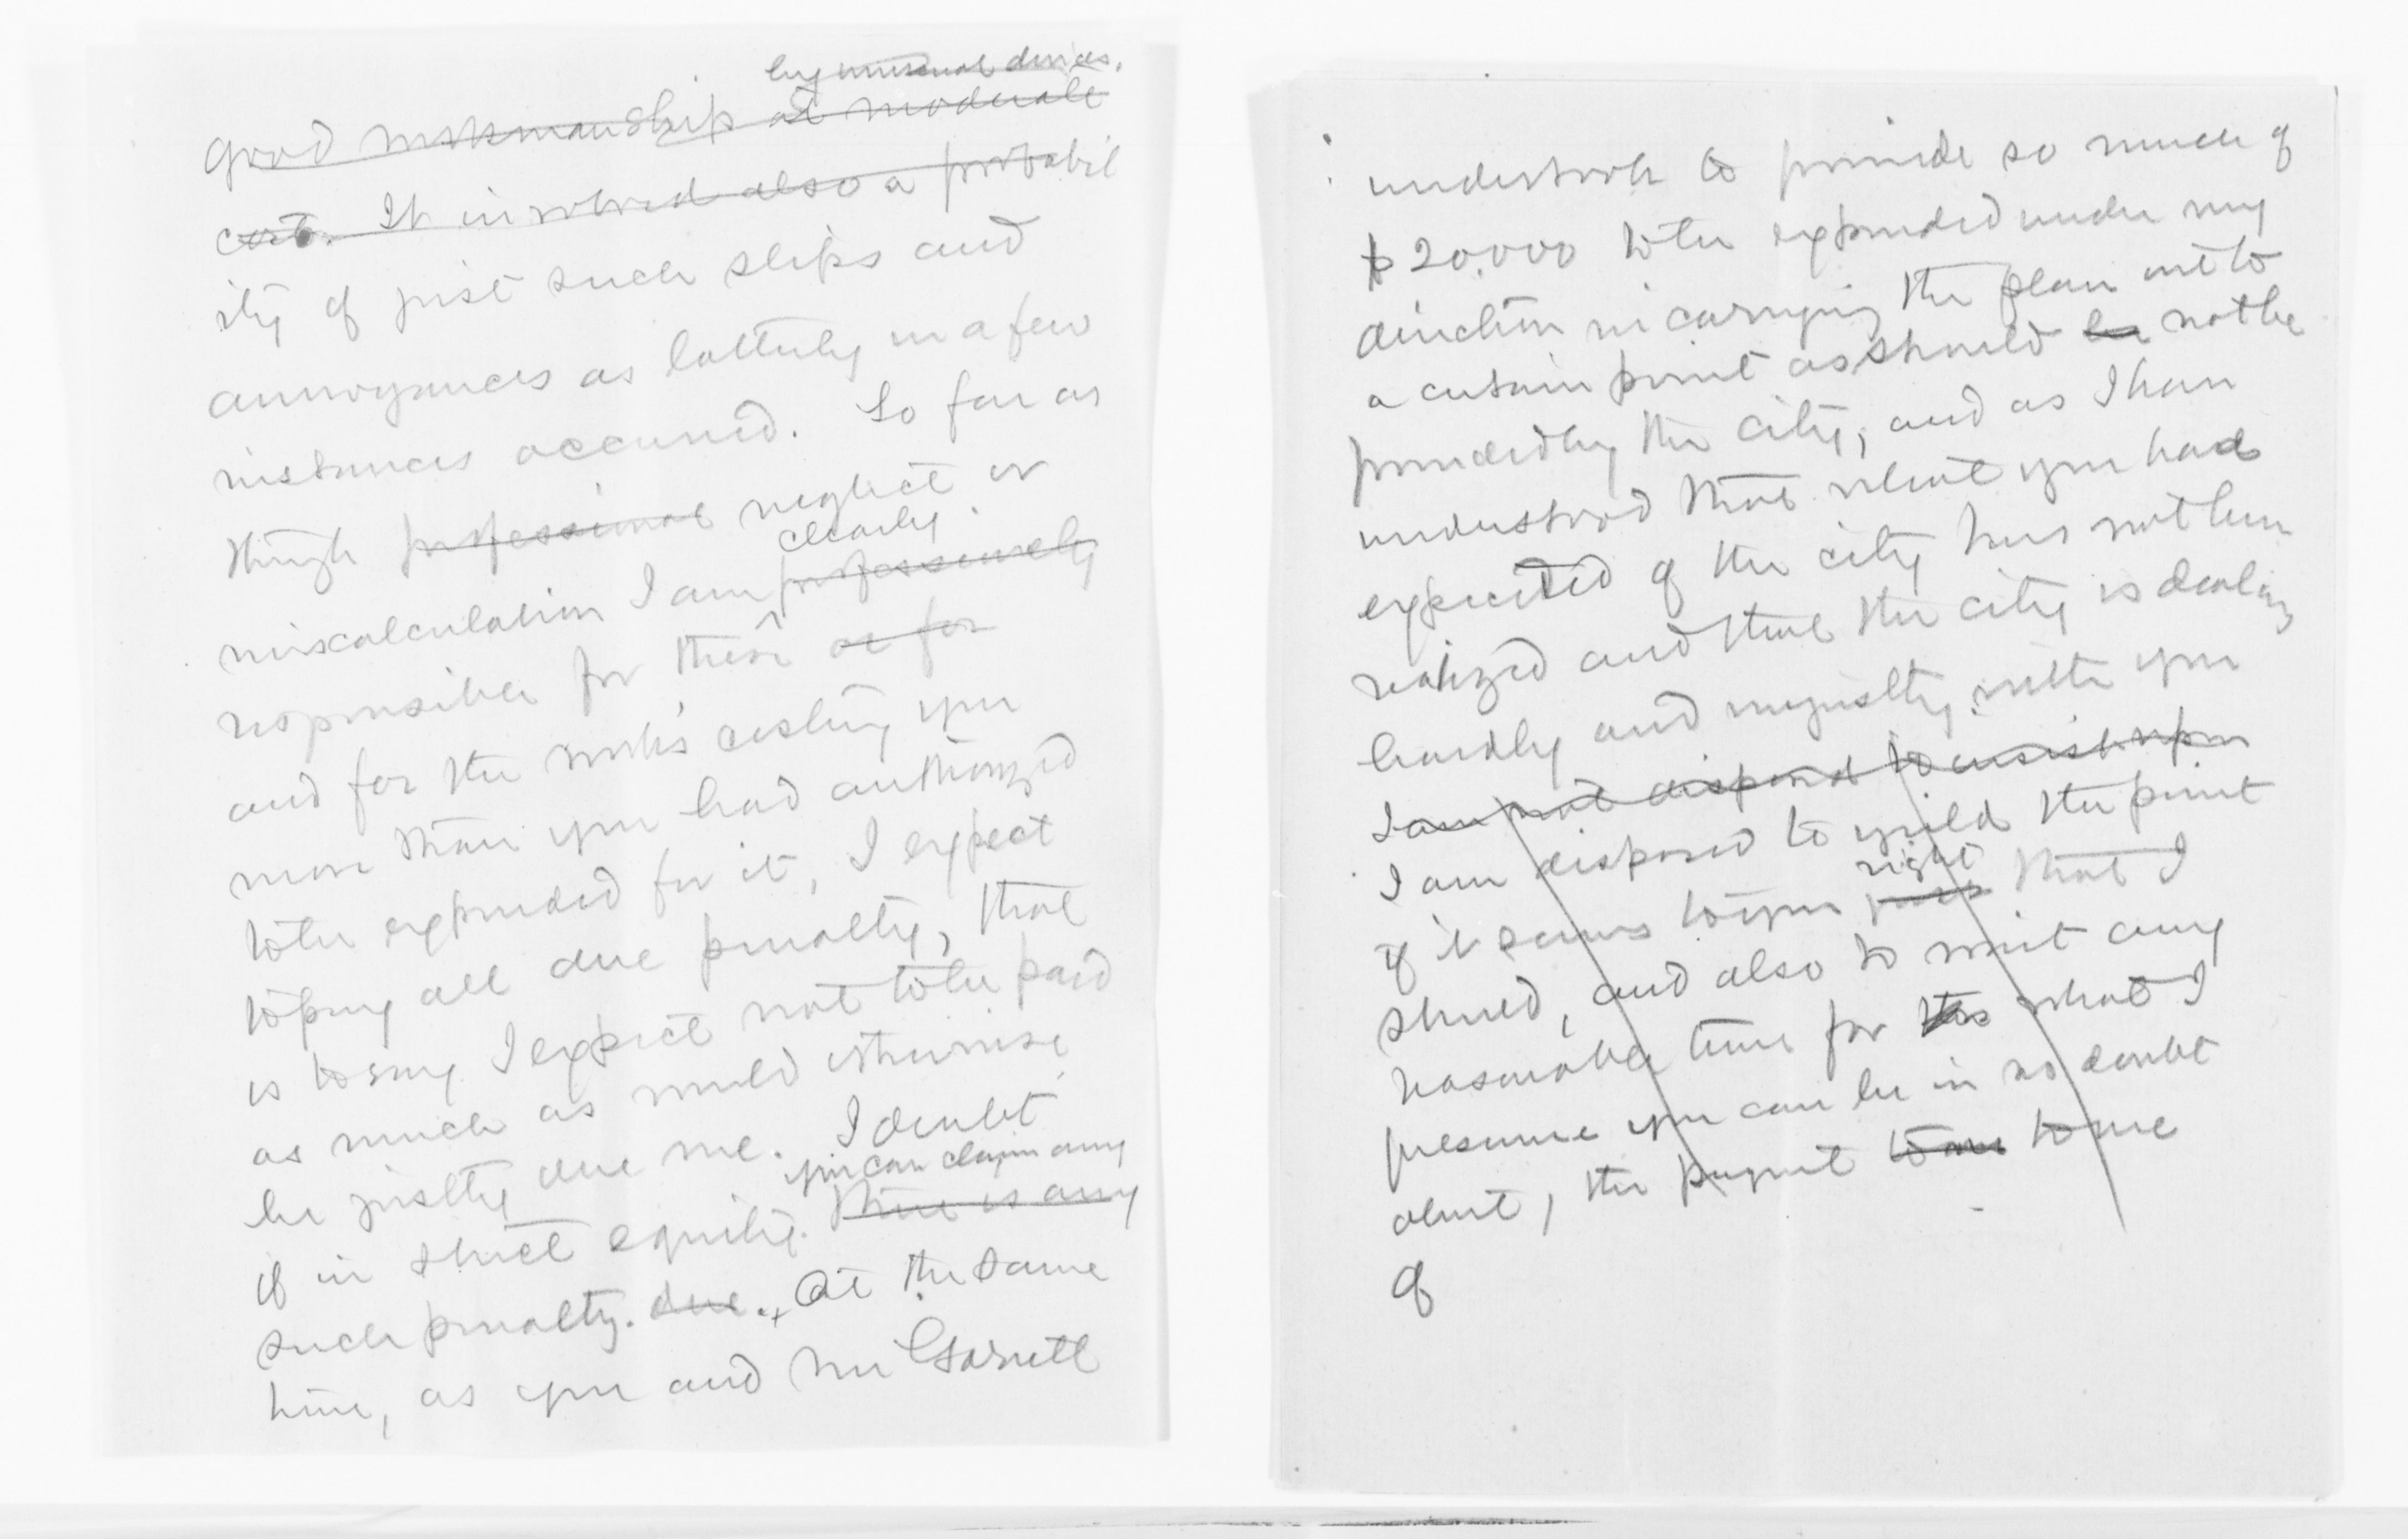 by unusual devices.
good workmanship at moderate
cost. It involved also a probabil
ity of just such slips and
annoyances as latterly in a few
instances occurred. So far as
through professional neglect or
clearly
miscalculation I am professionally
responsible for them or for
and for the work's costing you
more than you had authorized
to be expended for it, I expect
to pay all due penalty, that
is to say I expect not to be paid
as much as would otherwise
be justly due me. I doubt
you can claim any
if in strict equity. there is any
such penalty. due. At the same
time, as you and Mr Garrett
undertook to provide so much of
$20.000 to be expended under my
direction in carrying the plan out to
a certain point as should be not be
provided by the city, and as I have
understood that what you had
expected of the city has not been
realized and that the city is dealing
hardly and unjustly with you
I am not disposed to insist upon
I am disposed to yield the point
right
if it seems to you that I
should, and also to wait any
reasonable time for what I
presume you can be in no doubt
about, the payment to me to me
of